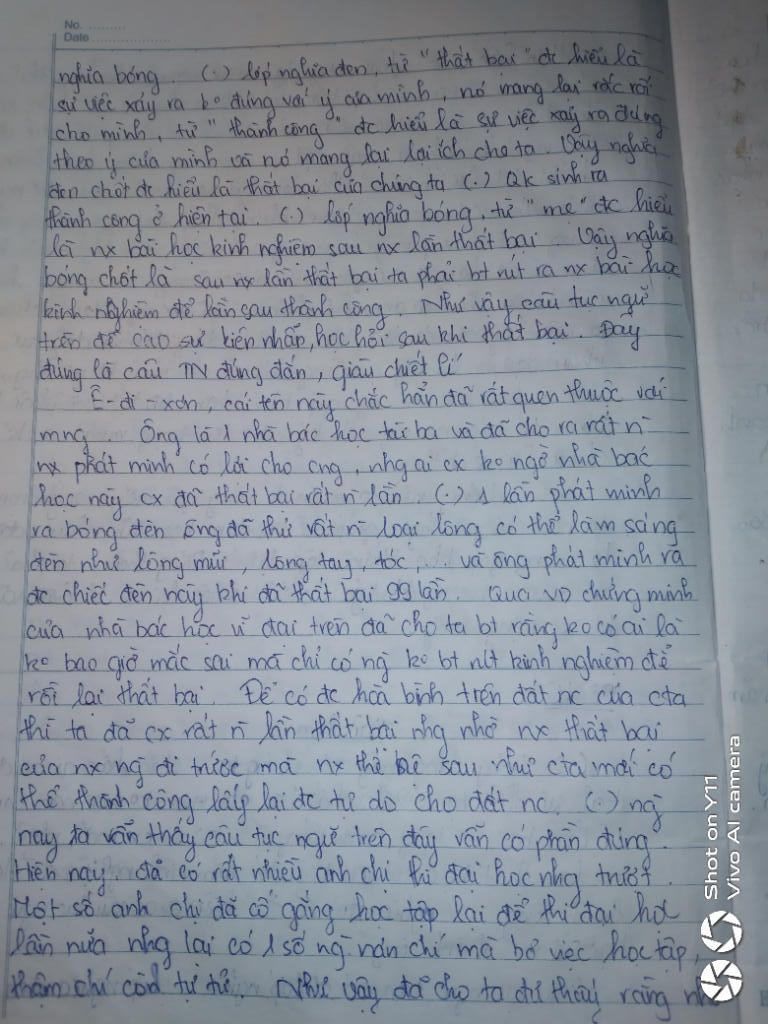 No. ............
Date .....................
nghĩa bóng (.) lớp nghĩa đen, từ "thất bại" đc hiểu là
sự việc xảy ra ko đúng với ý của mình, nó mang lại rắc rối
cho mình, từ "thành công" đc hiểu là sự việc xảy ra đúng
theo ý của mình và nó mang lại lợi ích cho ta. Vậy nghĩa
đen chốt đc hiểu là thất bại của chúng ta (.) Qk sinh ra
thành công ở hiện tại. (.) lớp nghĩa bóng, từ "mẹ" đc hiểu
là nx bài học kinh nghiệm sau nx lần thất bại. Vậy nghĩa
bóng chốt là sau nx lần thất bại ta phải bt rút ra nx bài học
kinh nghiệm để lần sau thành công. Như vậy câu tục ngữ
trên đề cao sự kiên nhẫn, học hỏi sau khi thất bại. Đây
đúng là câu TN đúng đắn, giàu chiết lí
Ê-đi-xơn, cái tên này chắc hẳn đã rất quen thuộc với
mng. Ông là 1 nhà bác học tài ba và đã cho ra rất n
nx phát minh có lời cho cng, nhg ai cx ko ngờ nhà bác
học này cx đã thất bại rất n lần. (.) 1 lần phát minh
ra bóng đèn ông đã thử rất n loại lông có thể làm sáng
đèn như lông mũi, lông tay, tóc, ... và ông phát minh ra
đc chiếc đèn này khi đã thất bại 99 lần. Qua VD chứng minh
của nhà bác học vĩ đại trên đã cho ta bt rằng ko có ai là
ko bao giờ mắc sai mà chỉ có ng ko bt rút kinh nghiệm để
rồi lại thất bại. Để có đc hoà bình trên đất nc của cta
thì ta đã cx rất n lần thất bại nhg nhờ nx thất bại
của nx ng đi trước mà nx thế hệ sau như cta mới có
thể thành công lấy lại đc tự do cho đất nc. (.) ng
nay ta vẫn thấy câu tục ngữ trên đây vẫn có phần đúng.
Hiện nay đã có rất nhiều anh chị thi đại học nhg trượt.
Một số anh chị đã cố gắng học tập lại để thi đại học
lần nữa nhg lại có 1 số ng nản chí mà bỏ việc học tập,
thậm chí còn tự tử. Như vậy đã cho ta đủ thấy rằng
Shot on Y11
Vivo AI camera